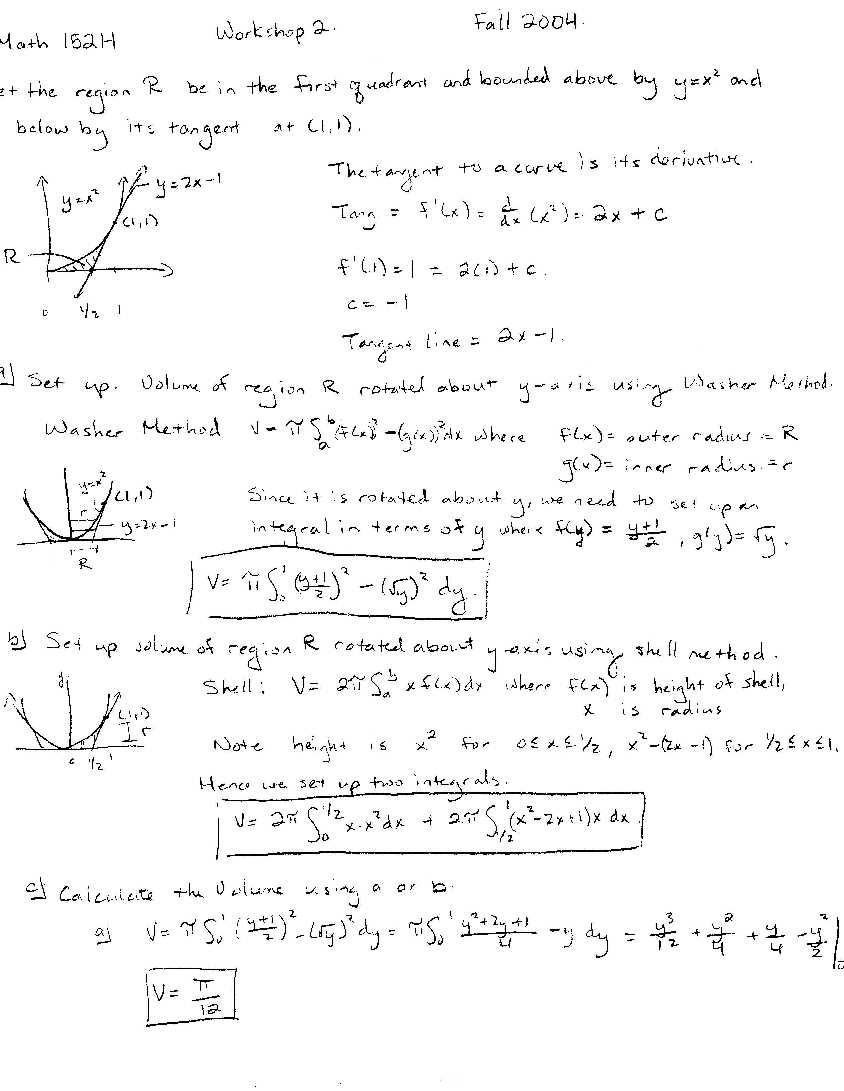 Math 152H Workshop 2. Fall 2004.
et the region R be in the first quadrant and bounded above by y=x² and
below by its tangent at (1,1).
The tangent to a curve is its derivative.
y=x² y=2x-1
Tang = f'(x) = d/dx (x²) = 2x + c
(1,1)
R
f'(1) = 1 = 2(1) + c.
c = -1
0 1/2 1
Tangent line = 2x-1.
a) Set up. Volume of region R rotated about y-axis using Washer Method.
Washer Method V = π∫ₐᵇ (f(x))² - (g(x))² dx where f(x) = outer radius = R
g(x) = inner radius. = r
y=x² (1,1)
r
y=2x-1
R
Since it is rotated about y, we need to set up an
integral in terms of y where f(y) = (y+1)/2, g(y) = √y.
V = π∫₀¹ ((y+1)/2)² - (√y)² dy.
b) Set up volume of region R rotated about y-axis using shell method.
Shell: V = 2π∫ₐᵇ x f(x) dx where f(x) is height of shell,
x is radius
(1,1)
r
0 1/2 1
Note height is x² for 0≤x≤1/2, x²-(2x-1) for 1/2≤x≤1.
Hence we set up two integrals.
V = 2π∫₀^(1/2) x·x² dx + 2π∫_(1/2)^1 (x²-2x+1)x dx
c) Calculate the Volume using a or b.
a) V = π∫₀¹ ((y+1)/2)² - (√y)² dy = π∫₀¹ (y²+2y+1)/4 - y dy = y³/12 + y²/4 + y/4 - y²/2 |₀
V = π/12